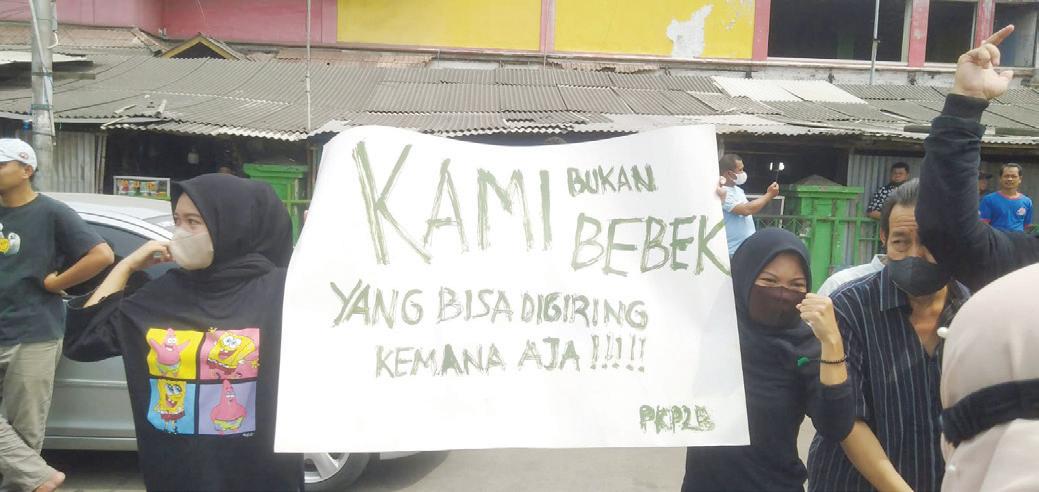 KAMI BUKAN
BEBEK
YANG BISA DIGIRING
KEMANA AJA !!!!!
PKP2B